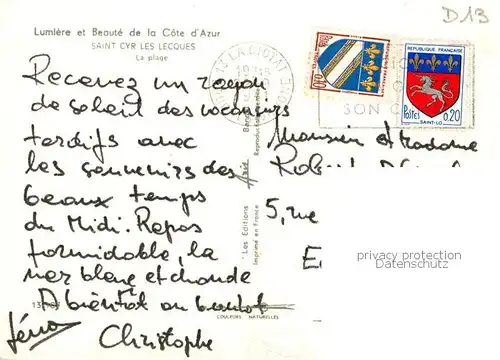 D 13
Lumière et Beauté de la Côte d'Azur
SAINT CYR LES LECQUES
La plage
Recevez un rayon
de soleil des vacanciers
tardifs avec
les souvenirs des
beaux temps
du Midi. Repos
formidable, la
mer blene et chaude
A bientôt
Christophe
LA CIOTAT
SON
0,10
RÉPUBLIQUE FRANÇAISE
Postes 0,20
SAINT-LO
Monsieur et Madame
Robert
5, rue
E
Les Editions
Imprimé en France
COULEURS NATURELLES
privacy protection
Datenschutz